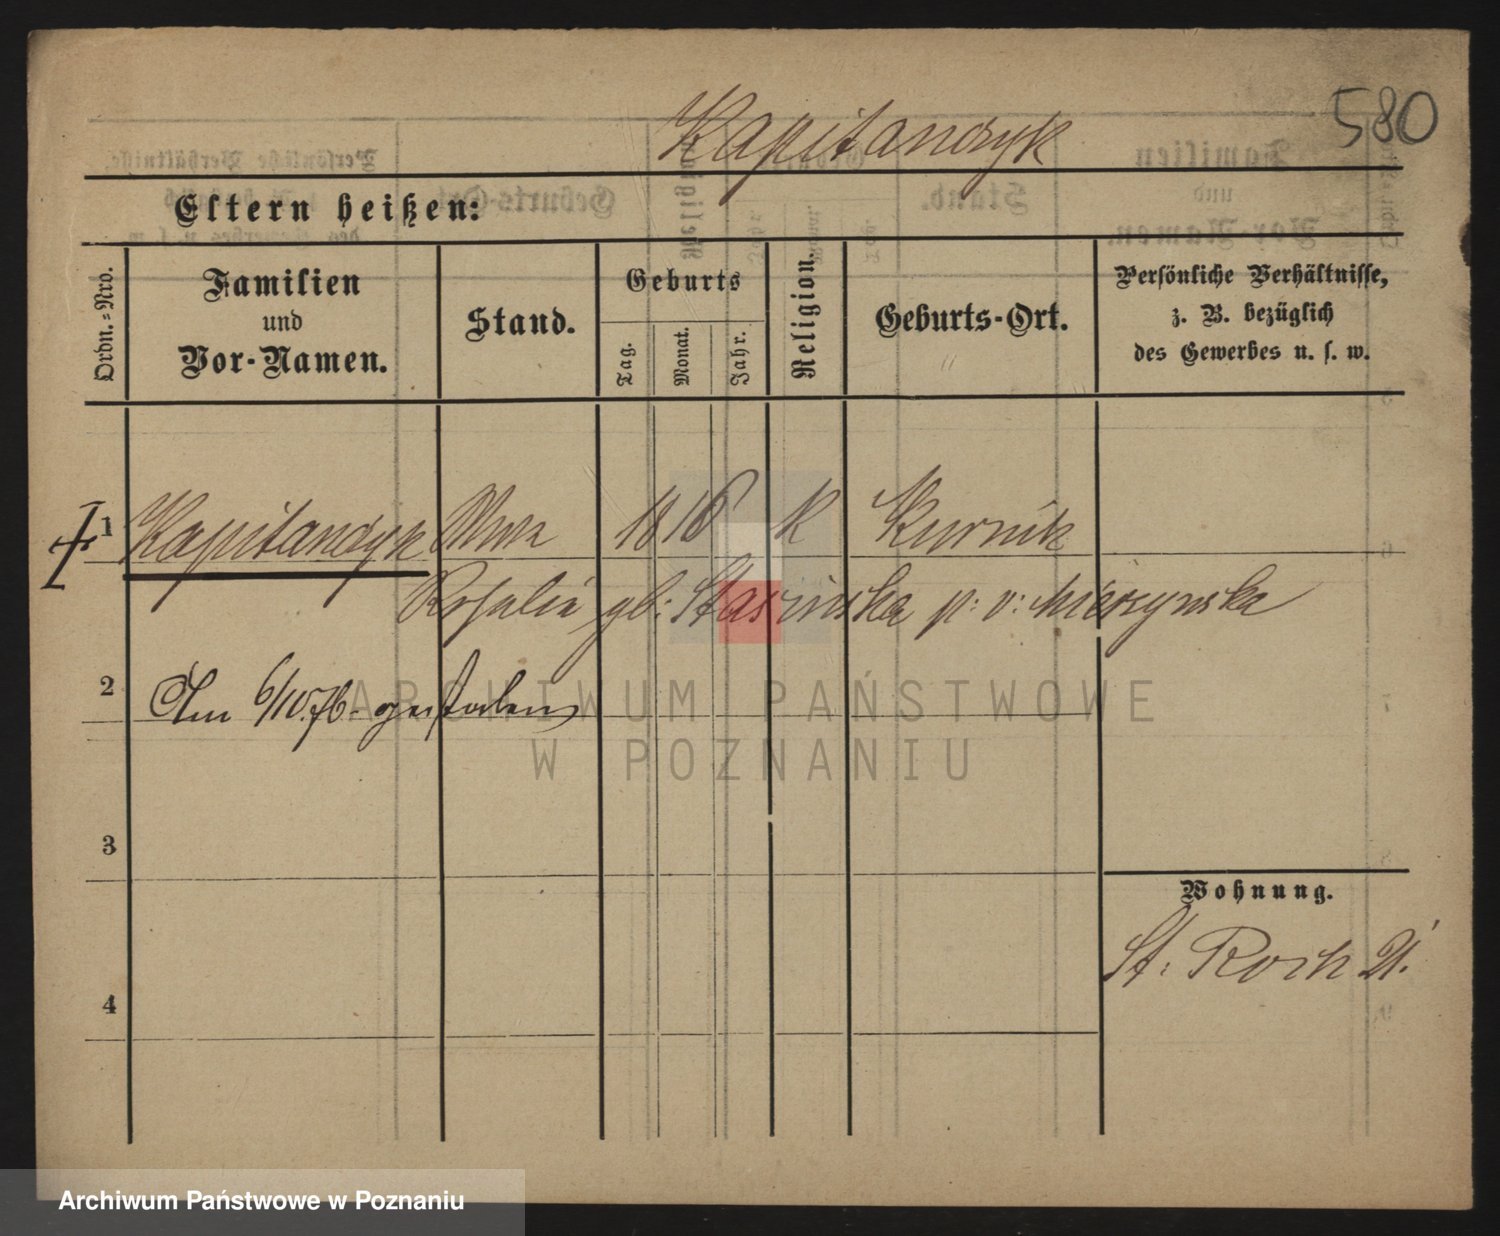 580
Kapitanczyk
Eltern heißen:
Ordn.-Nro.
Familien
und
Vor-Namen.
Stand.
Geburts
Tag.
Monat.
Jahr.
Religion.
Geburts-Ort.
Persönliche Verhältnisse,
z. B. bezüglich
des Gewerbes u. s. w.
1 Kapitanczyk Wwe 1816 K Kurnik
Rosalie gb: p: v:
2 Am 6/10.76. gestorben
3
Wohnung.
St: Roch 21.
4
ARCHIWUM PAŃSTWOWE
W POZNANIU
Archiwum Państwowe w Poznaniu